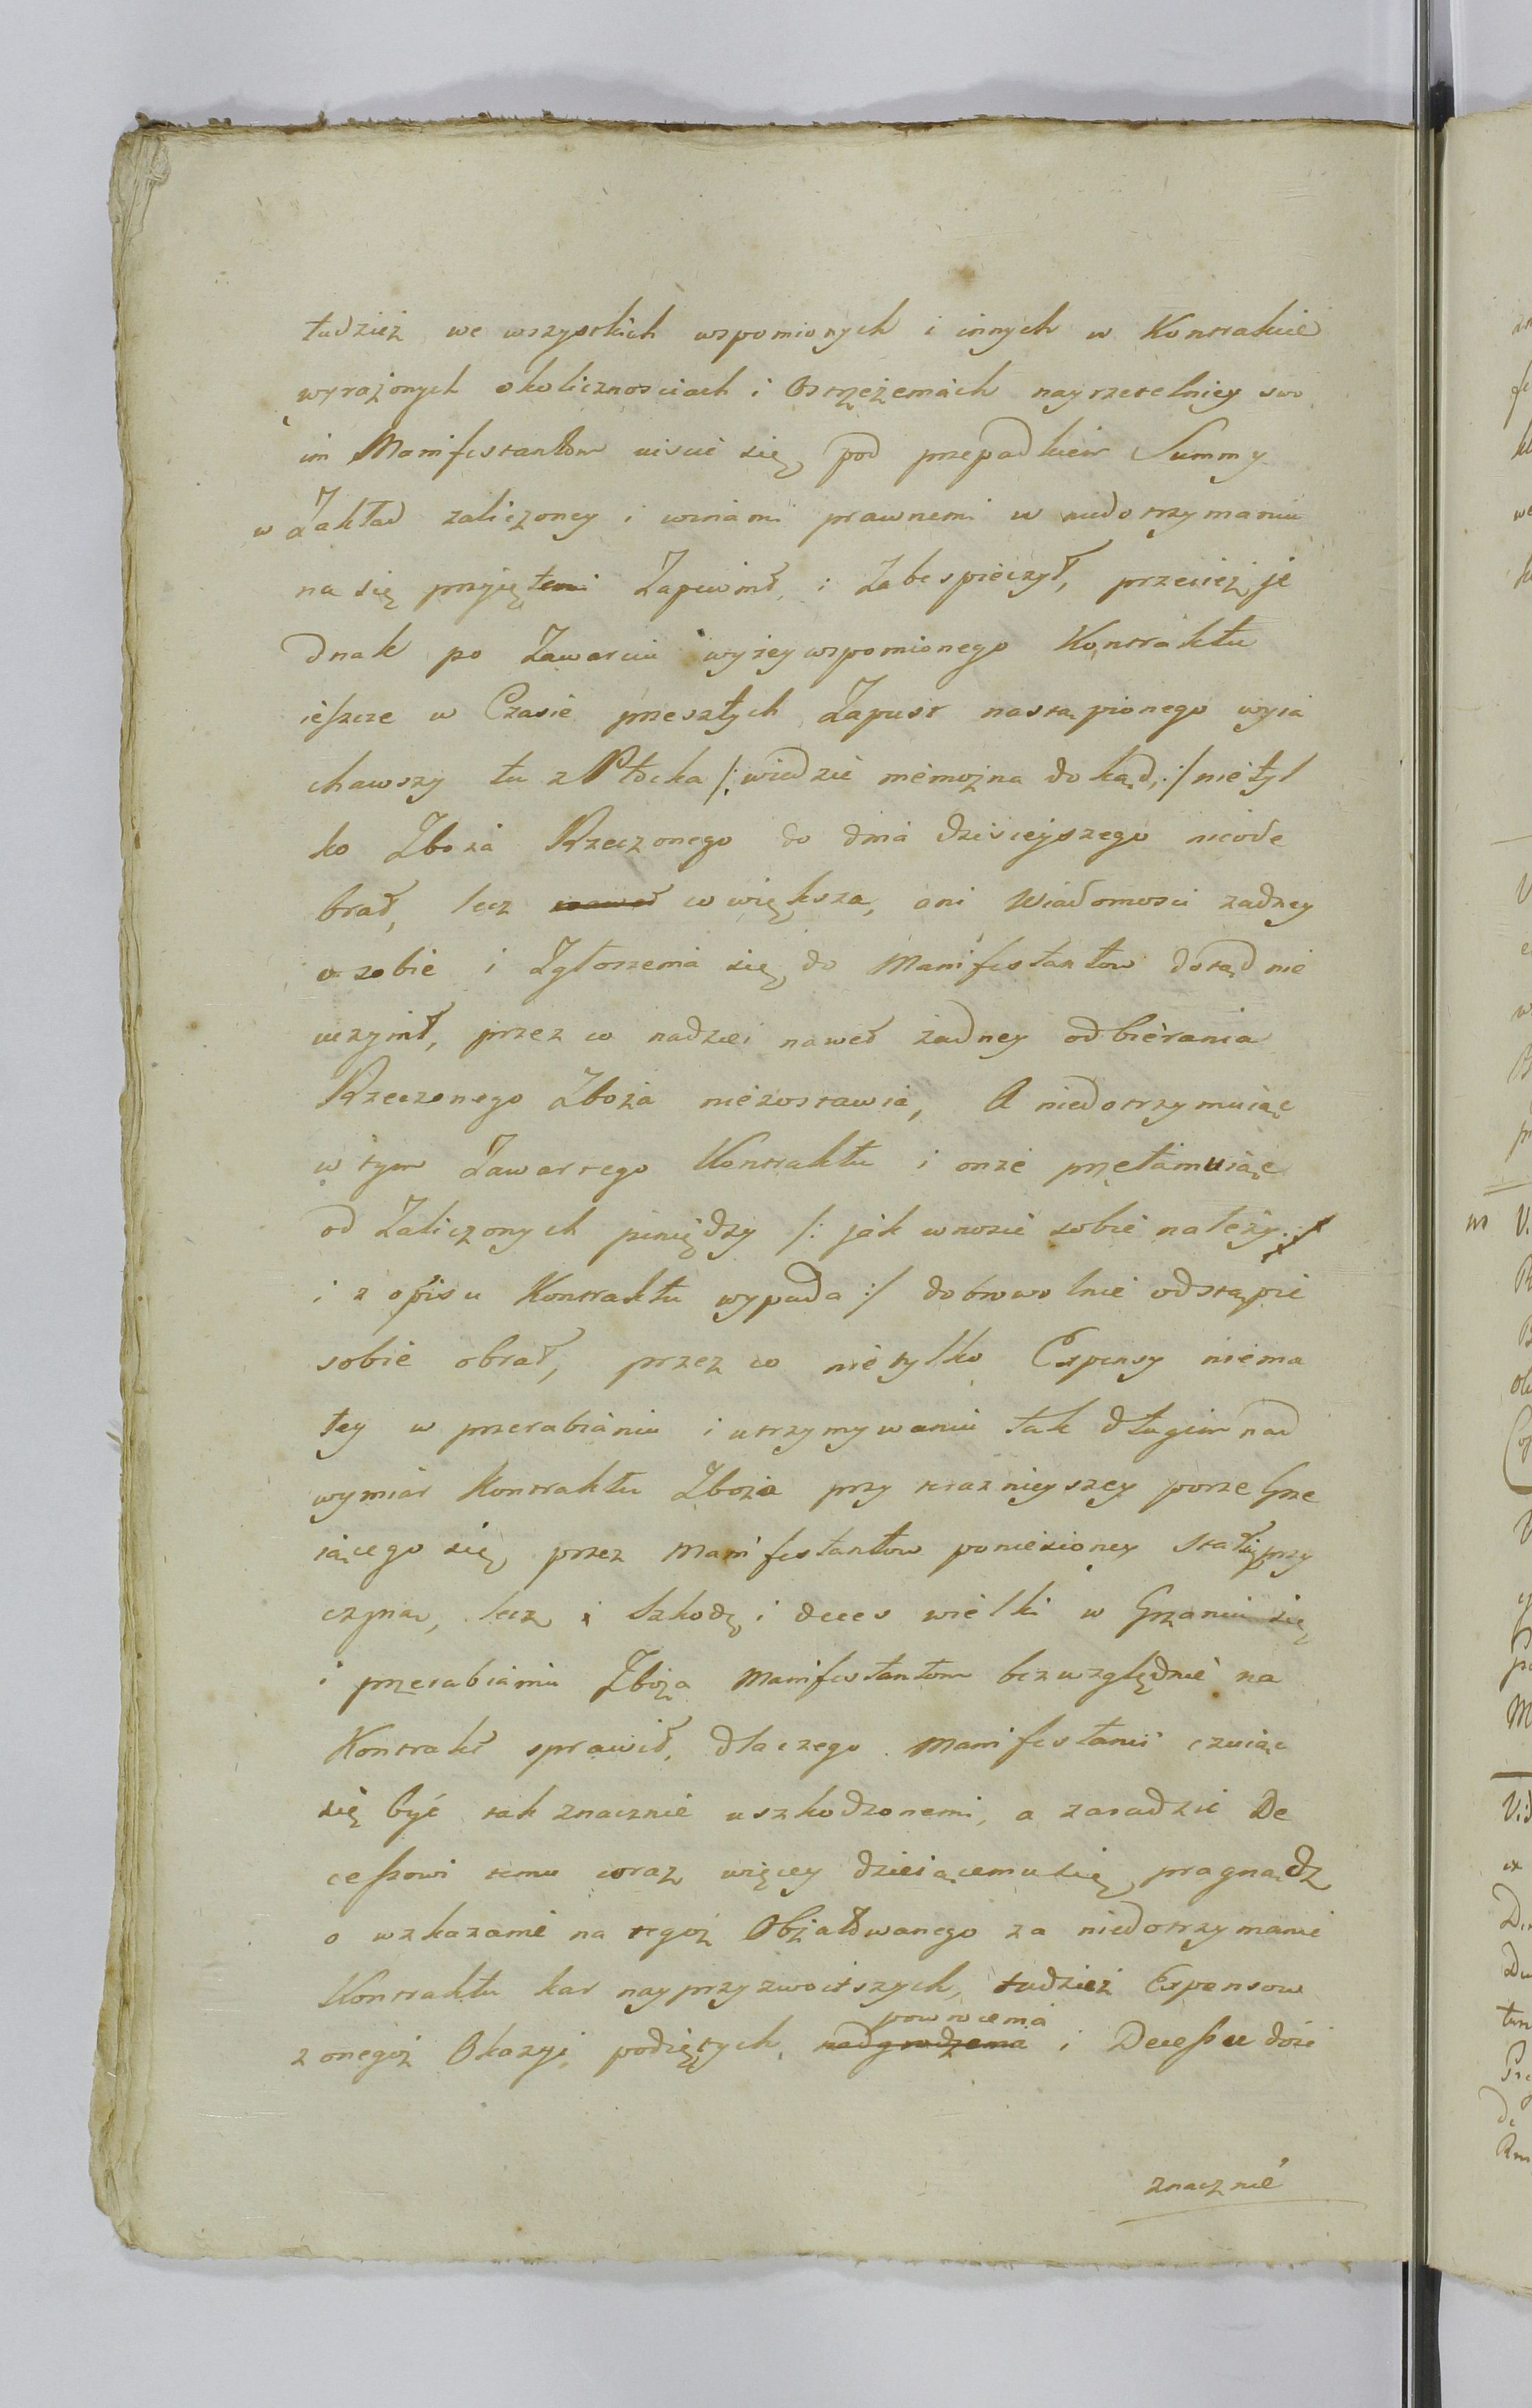 tudzież we wszystkich wspomionych i innych w Kontrakcie
wyrażonych okolicznosciach i Ostrzeżeniach nayrzetelniey swo
im Manifestantom uiscić się, pod przepadkiem Summy
w Zakład zaliczoney i winami prawnemi w niedotrzymaniu
na się przyiętemi Zapewnił, i Zabespieczył, przecież je
dnak po Zawarciu wyżey wspomionego Kontraktu
ieszcze w Czasie przeszłych Zapust nastąpionego wyia
chawszy tu z Płocka /: wiedzić niemożna dokąd :/ nietyl
ko Zboża Rzeczonego do dnia dzisieyszego nieode
brał, lecz co większa, ani Wiadomosci żadney
o sobie i Zgłoszenia się do Manifestantow dotąd nie
uczynił, przez co nadziei nawet żadney odbierania
Rzeczonego Zboża niezostawia, A niedotrzymuiąc
w tym Zawartego Kontraktu i onże przełamuiąc
od Zaliczonych pieniędzy /: jak wnosić sobie należy
i z opisu Kontraktu wypada :/ dobrowolnie odstąpić
sobie obrał, przez co nietylko Expensy niema
łey w przerabianiu i utrzymywaniu tak długim nad
wymiar Kontraktu Zboża przy teraznieyszey porze Grze
iącego się, przez Manifestantow poniesioney stał się przy
czyną, lecz i Szkodę i deces wielki w Grzaniu się
i przerabianiu Zboża Manifestantom bezwzględnie na
Kontrakt sprawił, dlaczego Manifestanci czuiąc
się być tak znacznie uszkodzonemi, a zaradzić De
cessowi temu coraz więcey dzieiącemu się pragnądz
o wskazanie na tegoż Obżałowanego za niedotrzymanie
Kontraktu kar nayprzyzwoitszych, tudzież Expensow
z onegoż Okazyi podiętych, nadgrodzenia powrocenia i Decessu dość
znacznie